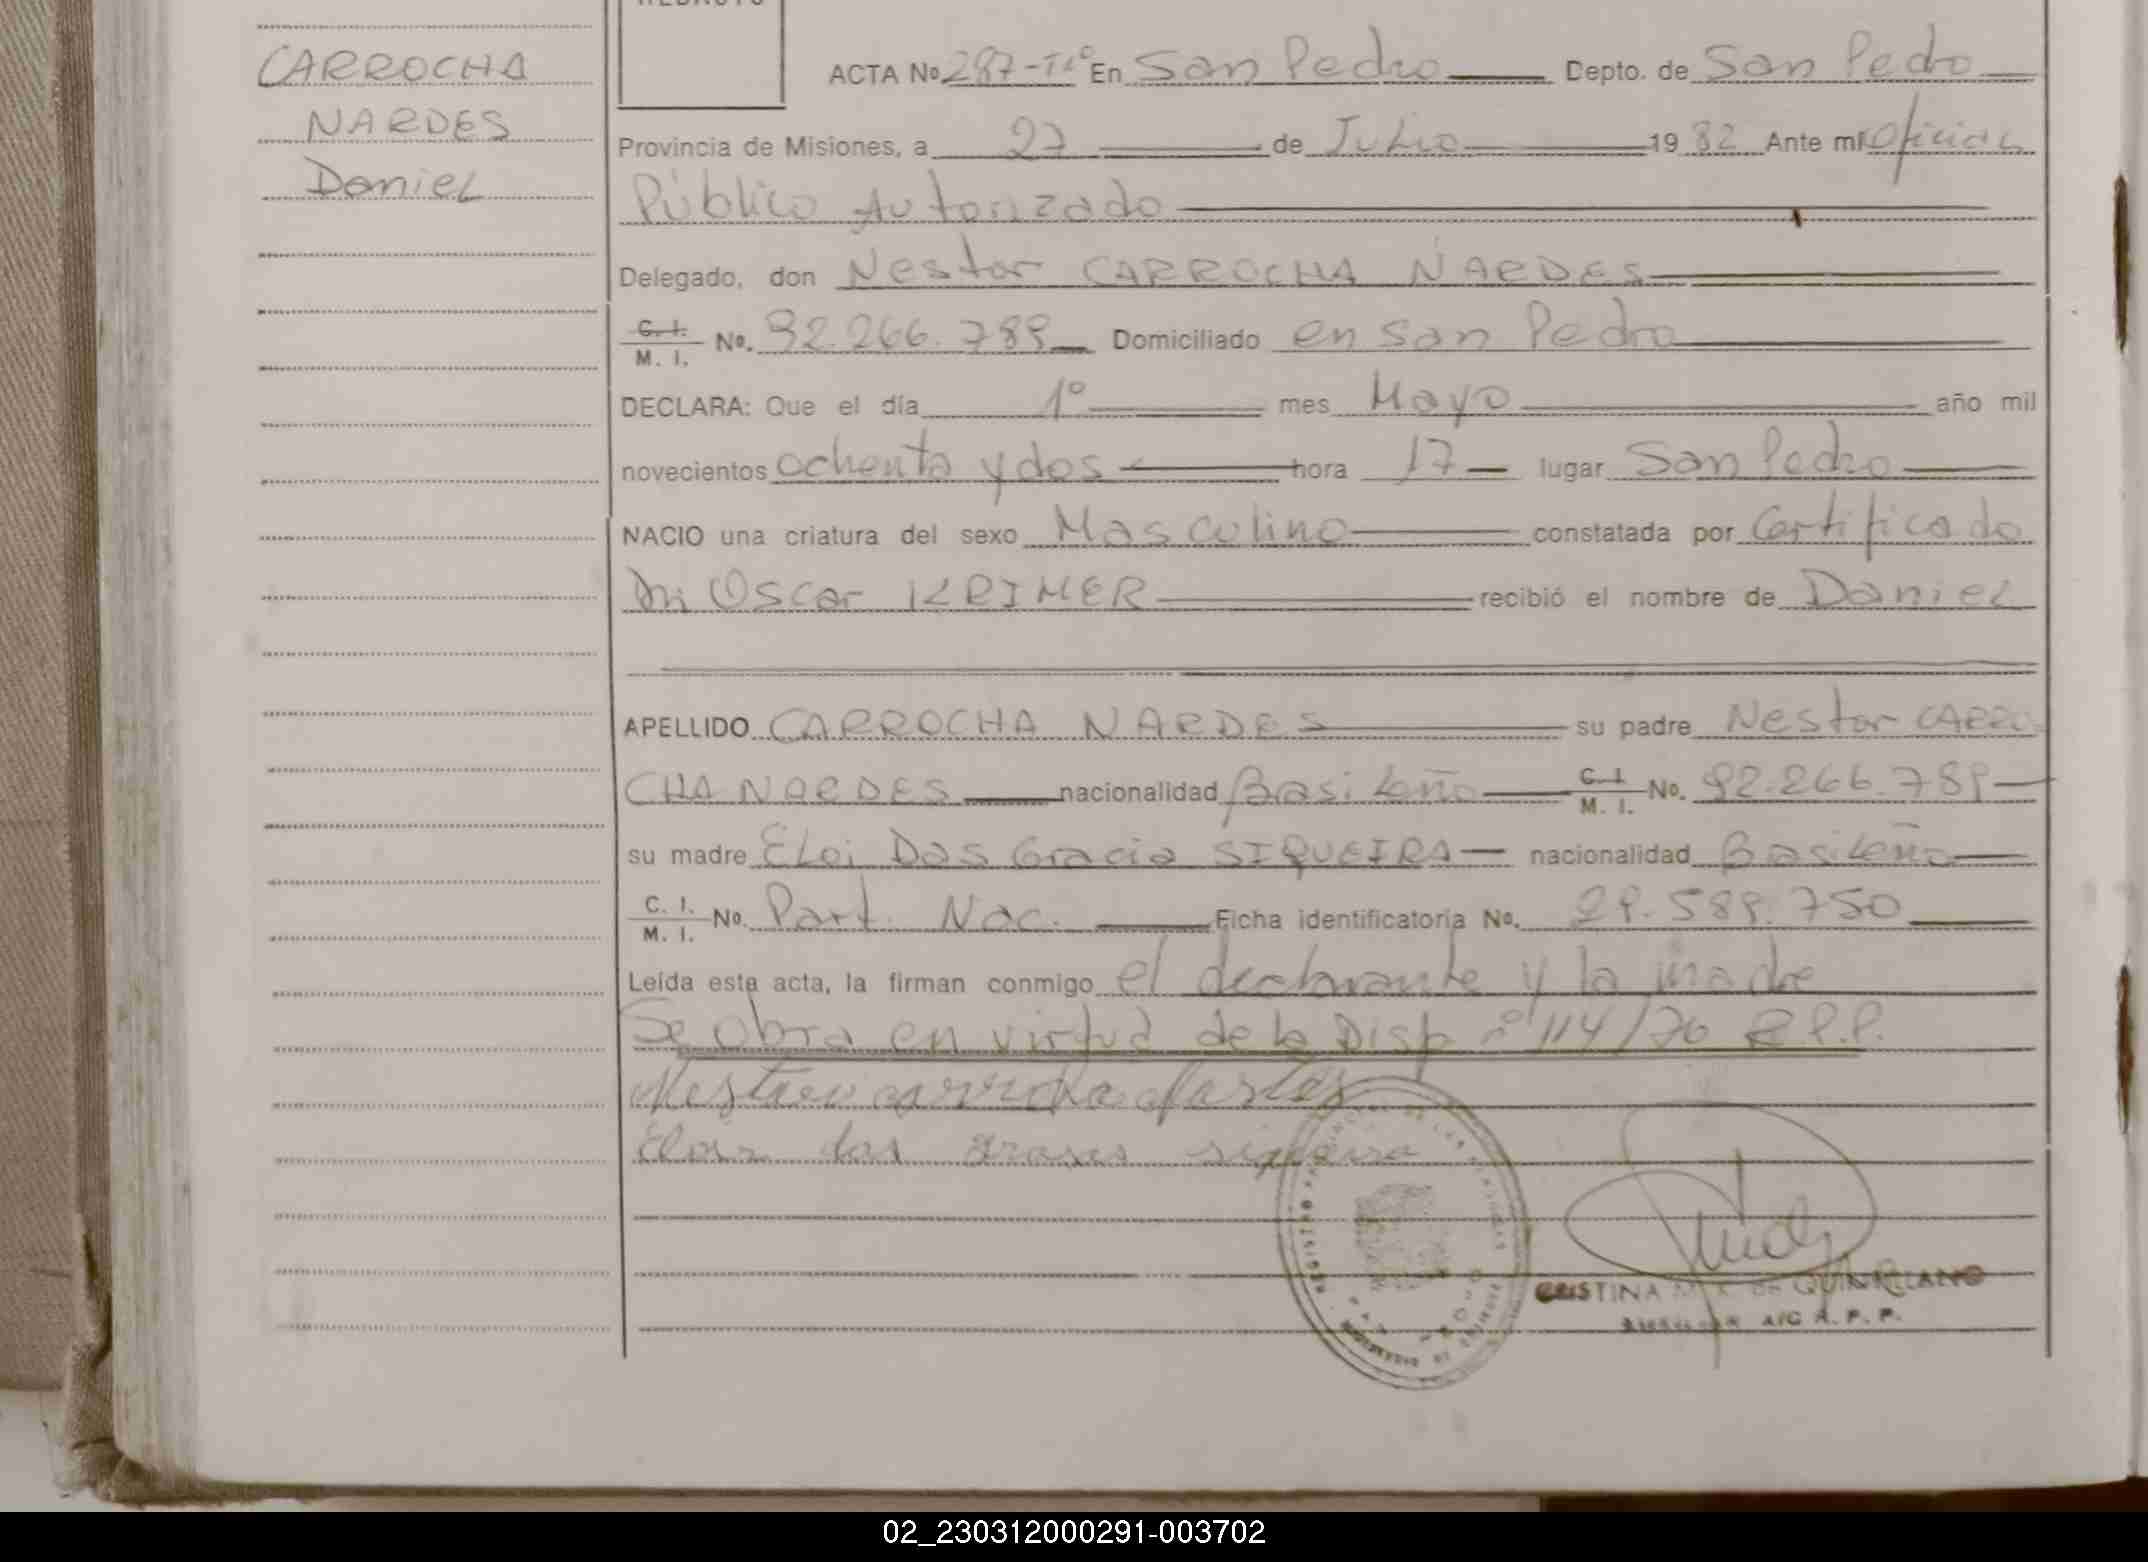 CARROCHA
NARDES
Daniel
ACTA No 287-Tº En San Pedro Depto. de San Pedro
Provincia de Misiones, a 27 de Julio 1982 Ante mí Oficial
Público Autorizado
Delegado, don Nestor CARROCHA NARDES
C. I. / M. I. No. 92.266.789 Domiciliado en San Pedro
DECLARA: Que el día 1º mes Mayo año mil
novecientos ochenta y dos hora 17 lugar San Pedro
NACIO una criatura del sexo Masculino constatada por Certificado
Oscar KRIMER recibió el nombre de Daniel
APELLIDO CARROCHA NARDES su padre Nestor CARRO
CHA NARDES nacionalidad Brasileño C. I. / M. I. No. 92.266.789
su madre Eloi Das Gracia SIQUEIRA nacionalidad Brasileña
C. I. / M. I. No. Part. Nac. Ficha identificatoria No. 29.589.750
Leída esta acta, la firman conmigo el declarante y la madre
Se obra en virtud de la Disp nº 114/70 R.P.P.
CRISTINA M. DE QUINTELLANO
AUXILIAR A/C R. P. P.
02_230312000291-003702